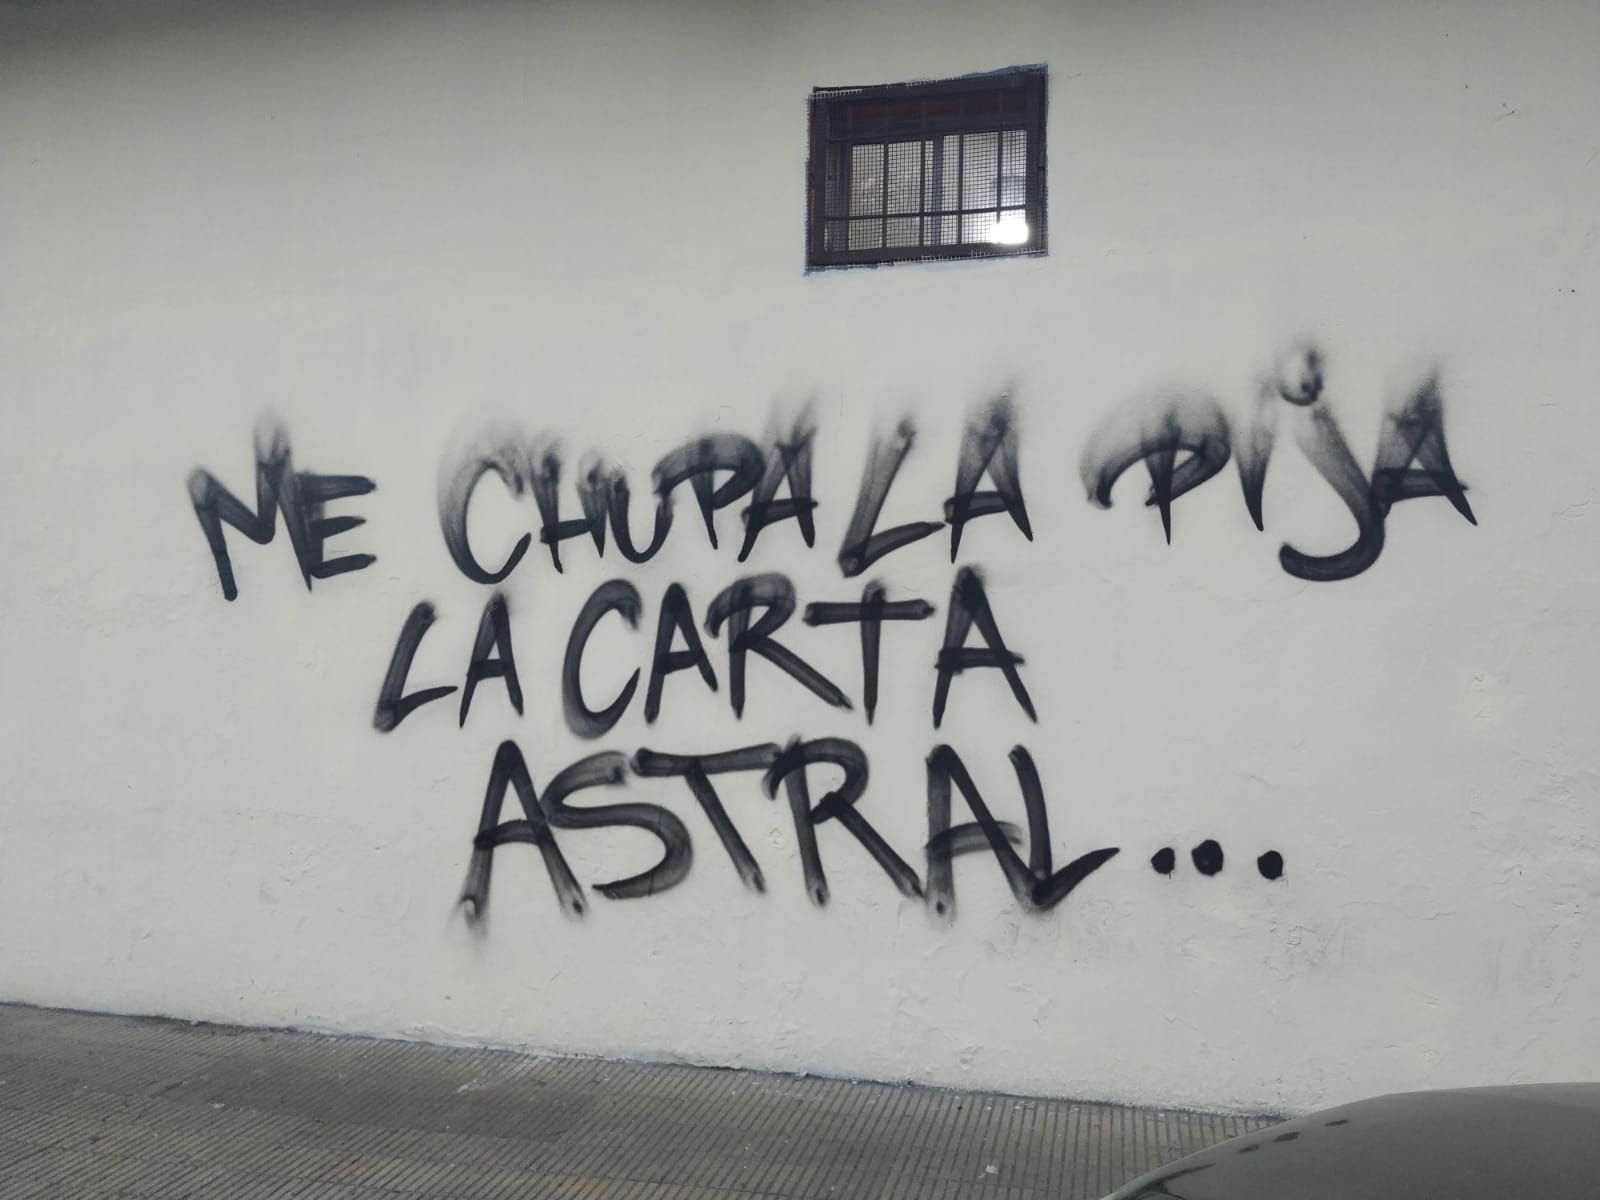 ME CHUPA LA PijA
LA CARTA
ASTRAL...